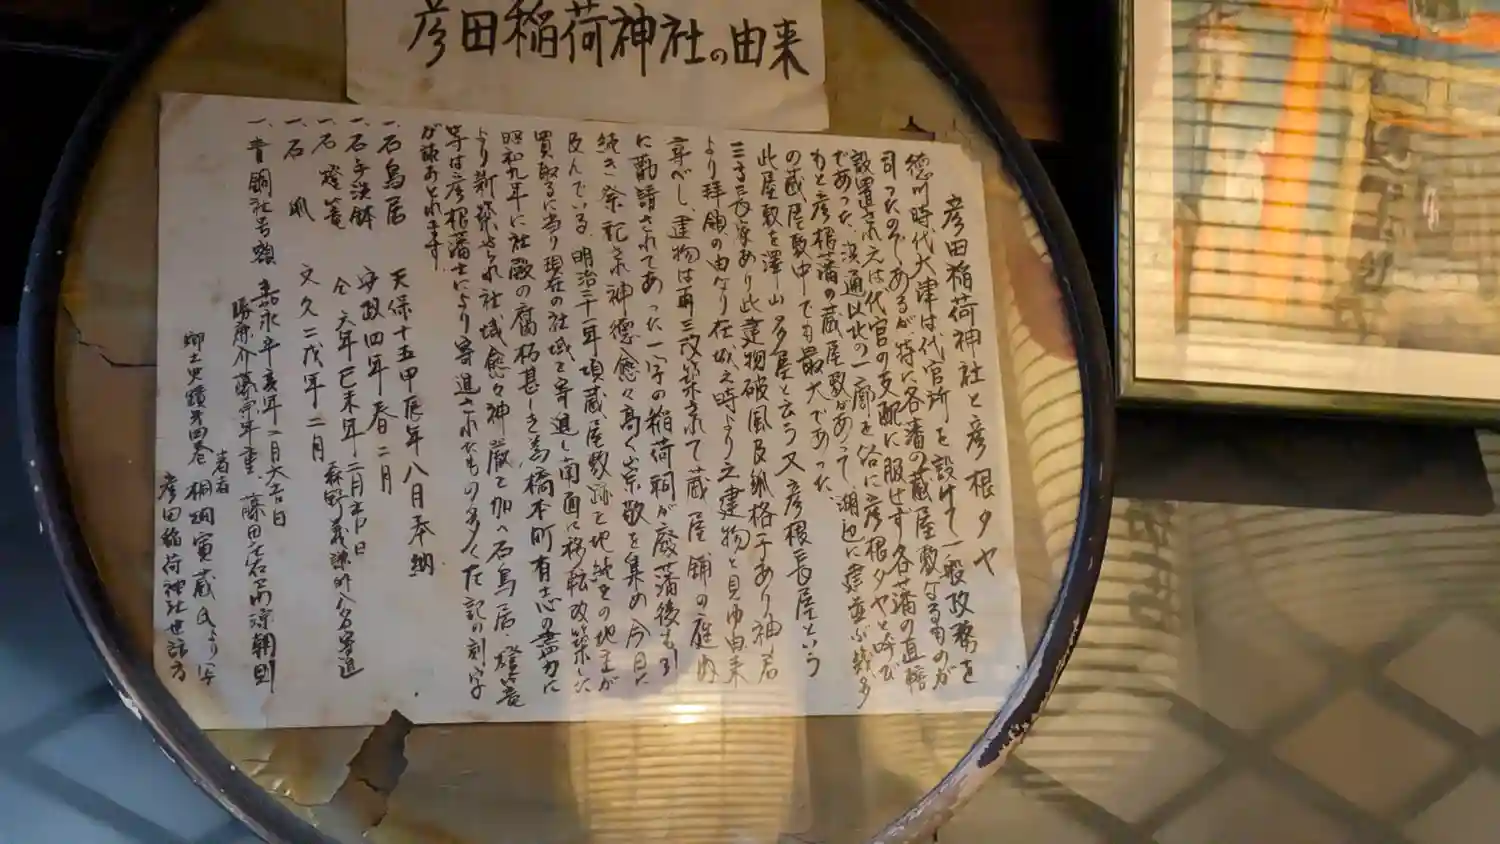 彦田稲荷神社の由来
彦田稲荷神社と彦根タヤ
徳川時代大津は代官所を設けて一般政務を
司ったのであるが、特に各藩の蔵屋敷なるものが
設置され元は代官の支配に服せず各藩の直轄
であった、浜通以北の一廓を俗に彦根タヤと呼び
もと彦根藩の蔵屋敷があって湖辺に建並ぶ幾多
の蔵屋敷中でも最大であった
此屋敷を澤山多屋と云う又彦根長屋という
三方長家あり此建物破風及狐格子あり神君
より拝領の由なり在城之時より之建物と見ゆ由来
尋べし、建物は再三改築されて蔵屋舗の庭内
に勧請されてあった一宇の稲荷祠が廃藩後も引
続き祭祀され神徳愈々高く崇敬を集め今日に
及んでいる、明治三十年頃蔵屋敷跡を地続きの地主が
買取るに当り現在の社域を寄進し南面に移転改築した
昭和九年に社殿の腐朽甚しき為橋本町有志の尽力に
より新築せられ社域愈々神厳を加へ石鳥居、燈篭
等は彦根藩士により寄進されたもの多く左記の刻字
が読まれます
一、石鳥居 天保十五甲辰年八月奉納
一、石手洗鉢 安政四年春二月
一、石燈篭 仝六年巳未年二月吉日 森野義謙外八名寄進
一、石 文久二戌年二月
一、青銅社号額 嘉永辛亥年二月大吉日
藤原
郷土史蹟第四巻 著者 桐畑寅蔵氏より写
彦田稲荷神社世話方